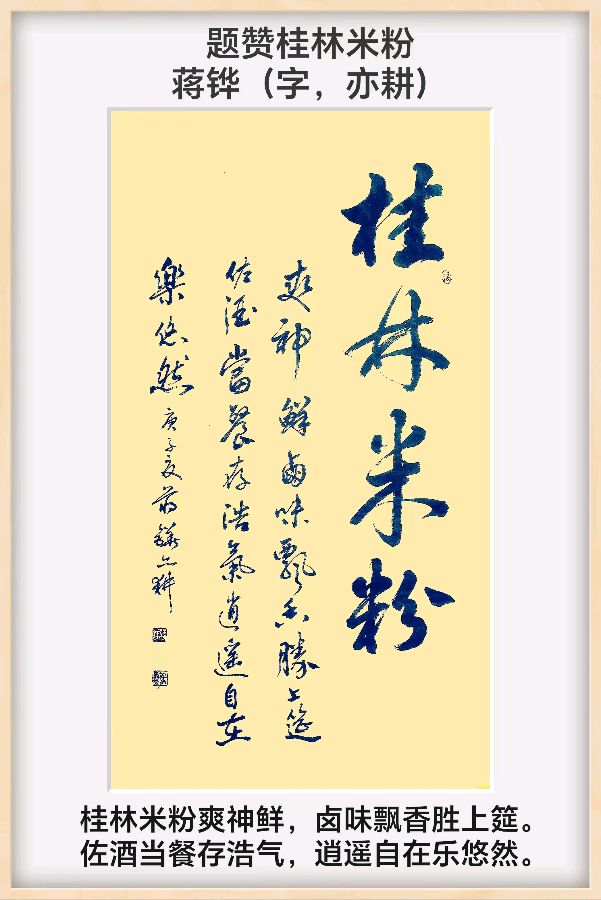 题赞桂林米粉
蒋铧（字，亦耕）
桂林米粉
爽神鲜卤味飘香勝上筵
佐酒當餐存浩氣逍遥自在
樂悠然 庚子夏蒋鏵亦耕
桂林米粉爽神鲜，卤味飘香胜上筵。
佐酒当餐存浩气，逍遥自在乐悠然。